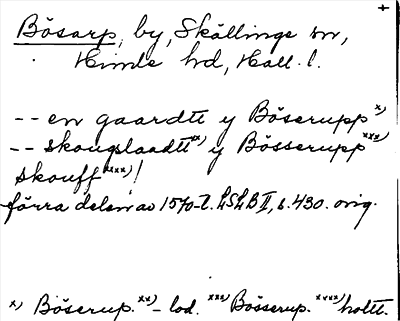 +
Bösarp, by, Skällinge sn,
Himle hd, Hall. l.
-- en gaardtt y Böserupp x)
-- skougslaadtt xx) y Bösserupp xxx)
skouff xxxx)!
förra delen av 1570-t. LSLB II, s. 430. orig.
x) Böserup. xx) - lod. xxx) Bösserup. xxxx) holtt.